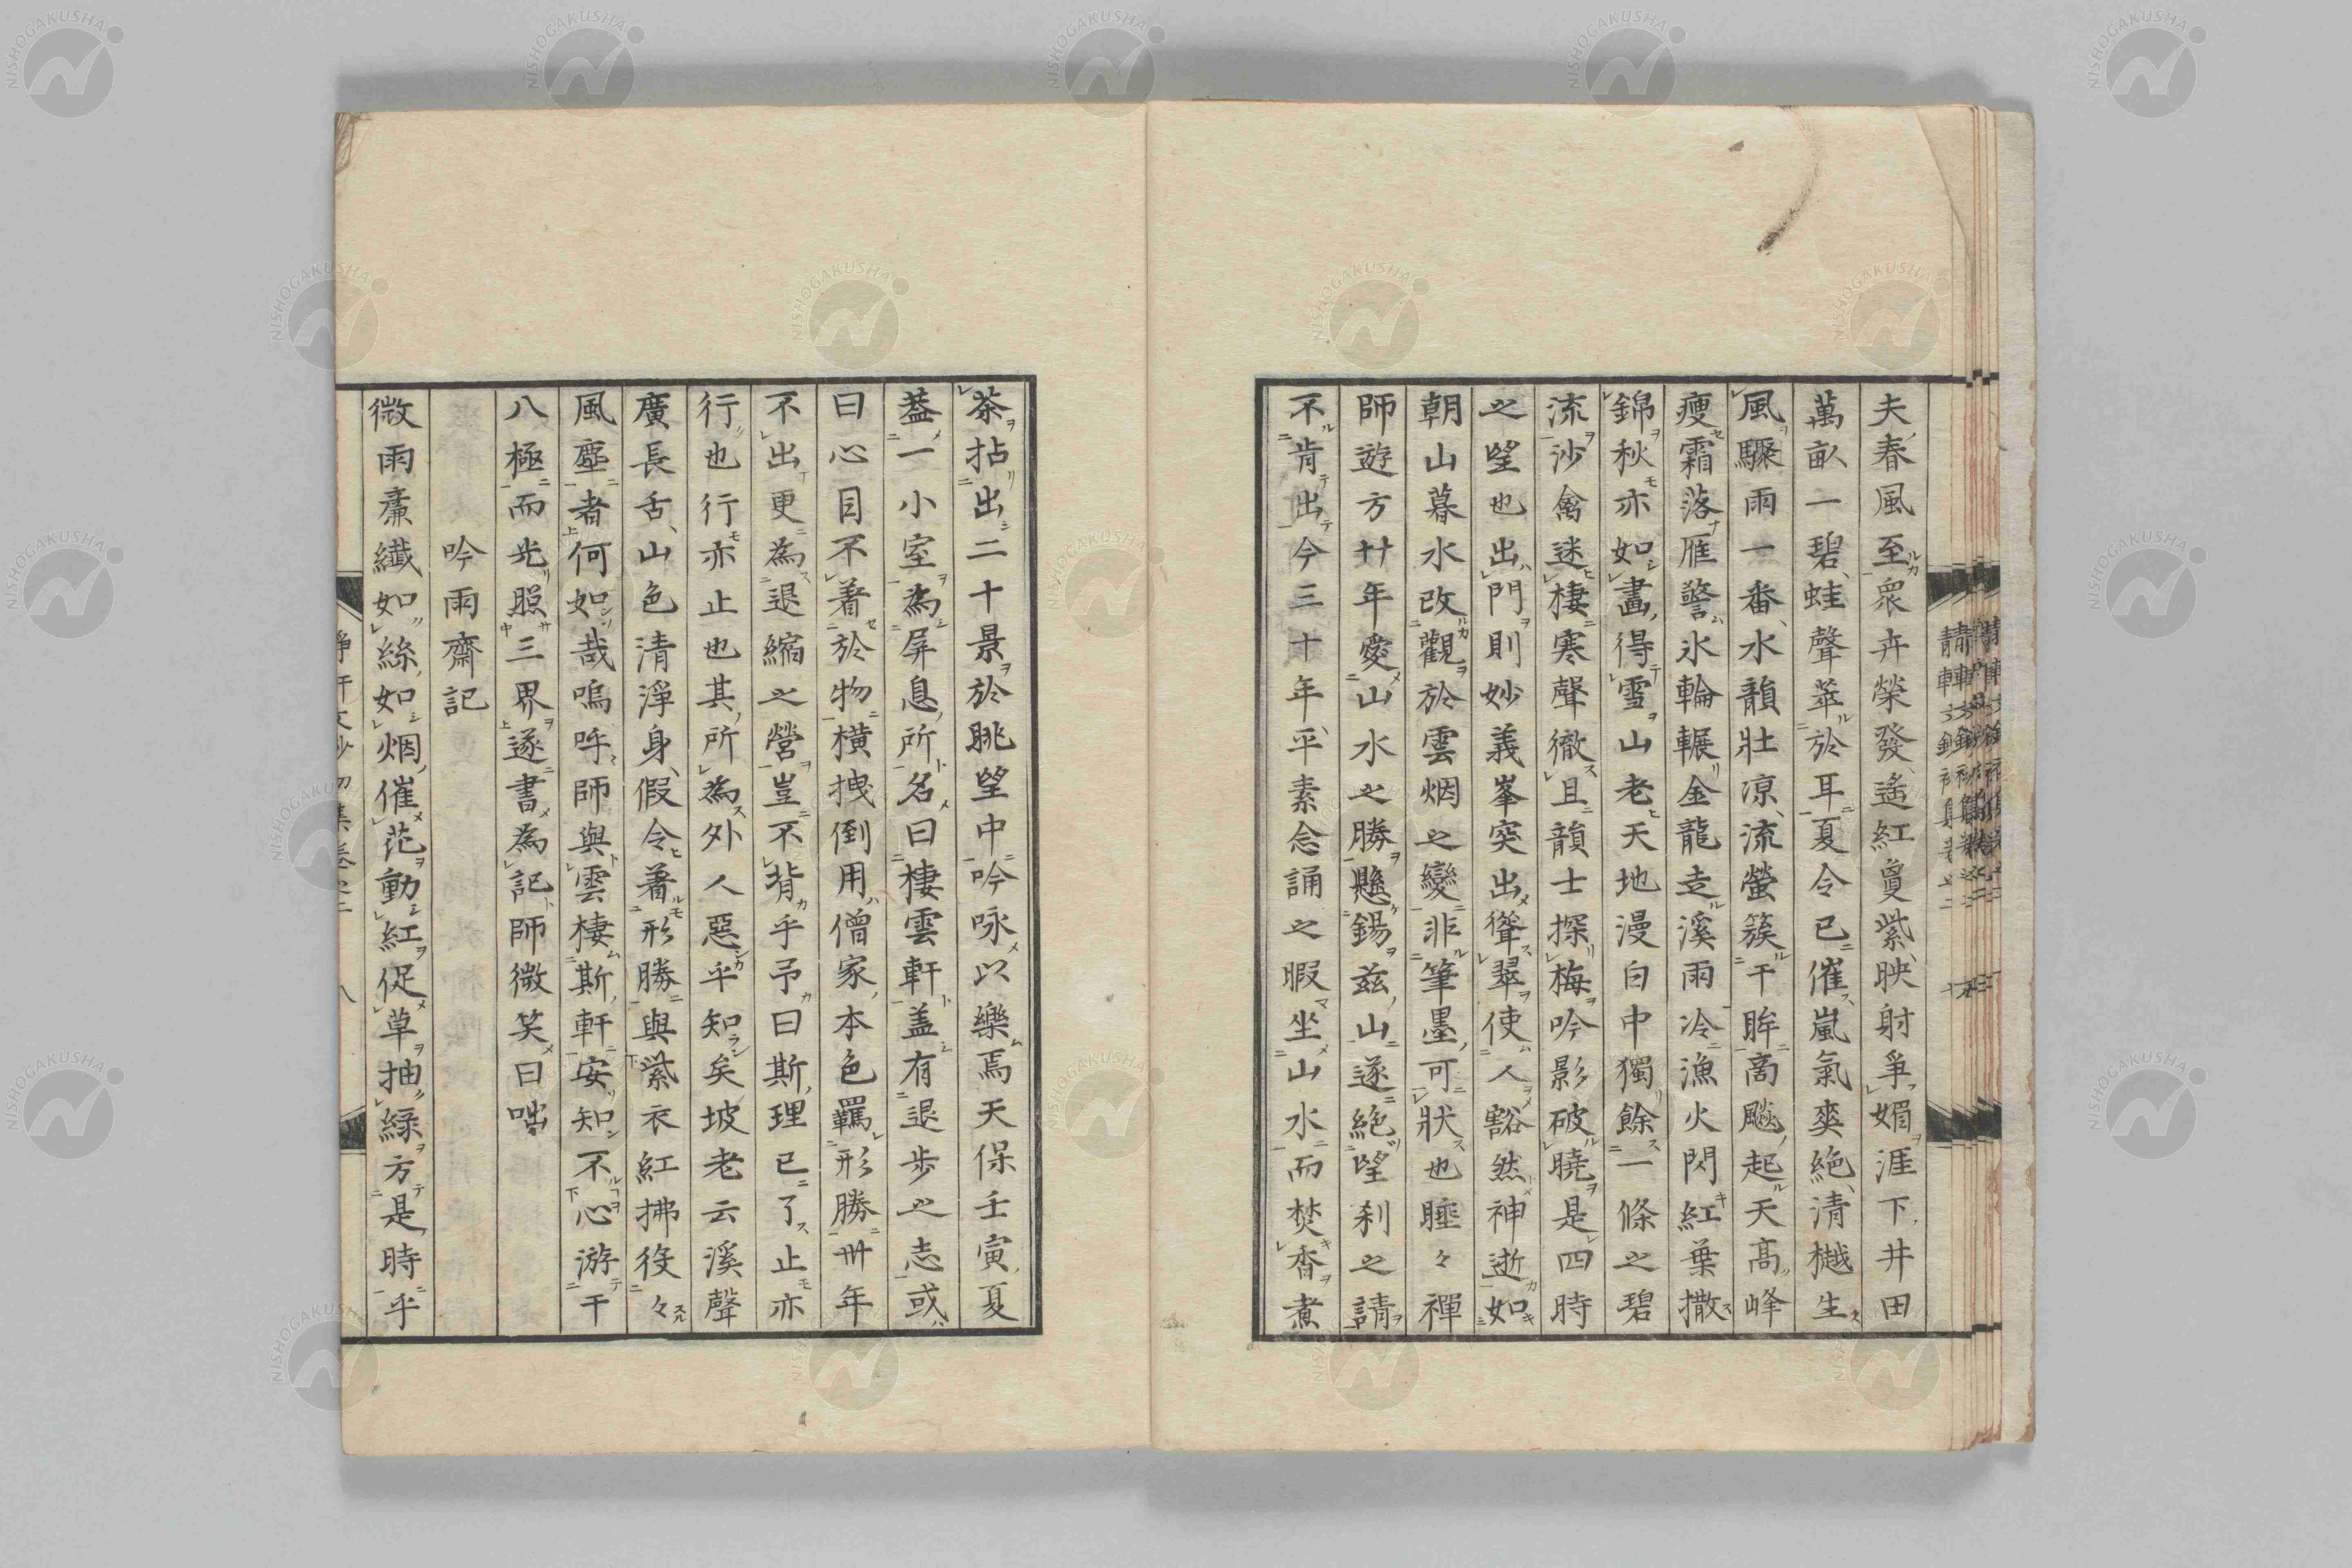 夫春風至衆卉榮發遙紅敻紫映射爭媚涯下井田
萬畝一碧蛙聲萃於耳夏令已催嵐氣爽絶清樾生
風驟雨一番水韻壯凉流螢簇于眸高飈起天高峰
瘦霜落雁警氷輪輾金龍走溪雨冷漁火閃紅葉撒
錦秋亦如畵得雪山老天地漫白中獨餘一條之碧
流沙禽迷棲寒聲徹且韻士探梅吟影破曉是四時
之望也出門則妙義峯突出聳翠使人豁然神逝如
朝山暮水改觀於雲烟之變非筆墨可狀也睡々禪
師遊方廿年愛山水之勝懸錫玆山遂絶望刹之請
不肯出今三十年平素念誦之暇坐山水而焚香煮
茶拈出二十景於眺望中吟咏以樂焉天保壬寅夏
葢一小室為屏息所名曰棲雲軒盖有退步之志或
曰心目不著於物橫拽倒用僧家本色羈形勝卅年
不出更為退縮之營豈不背乎予曰斯理已了止亦
行也行亦止也其所為外人惡乎知矣坡老云溪聲
廣長舌山色清淨身假令著形勝與紫衣紅拂役々
風塵者何如哉嗚呼師與雲棲斯軒安知不心游于
八極而光照三界遂書為記師微笑曰咄
吟雨齋記
微雨廉纖如絲如烟催花動紅促草抽緑方是時乎
NISHOGAKUSHA